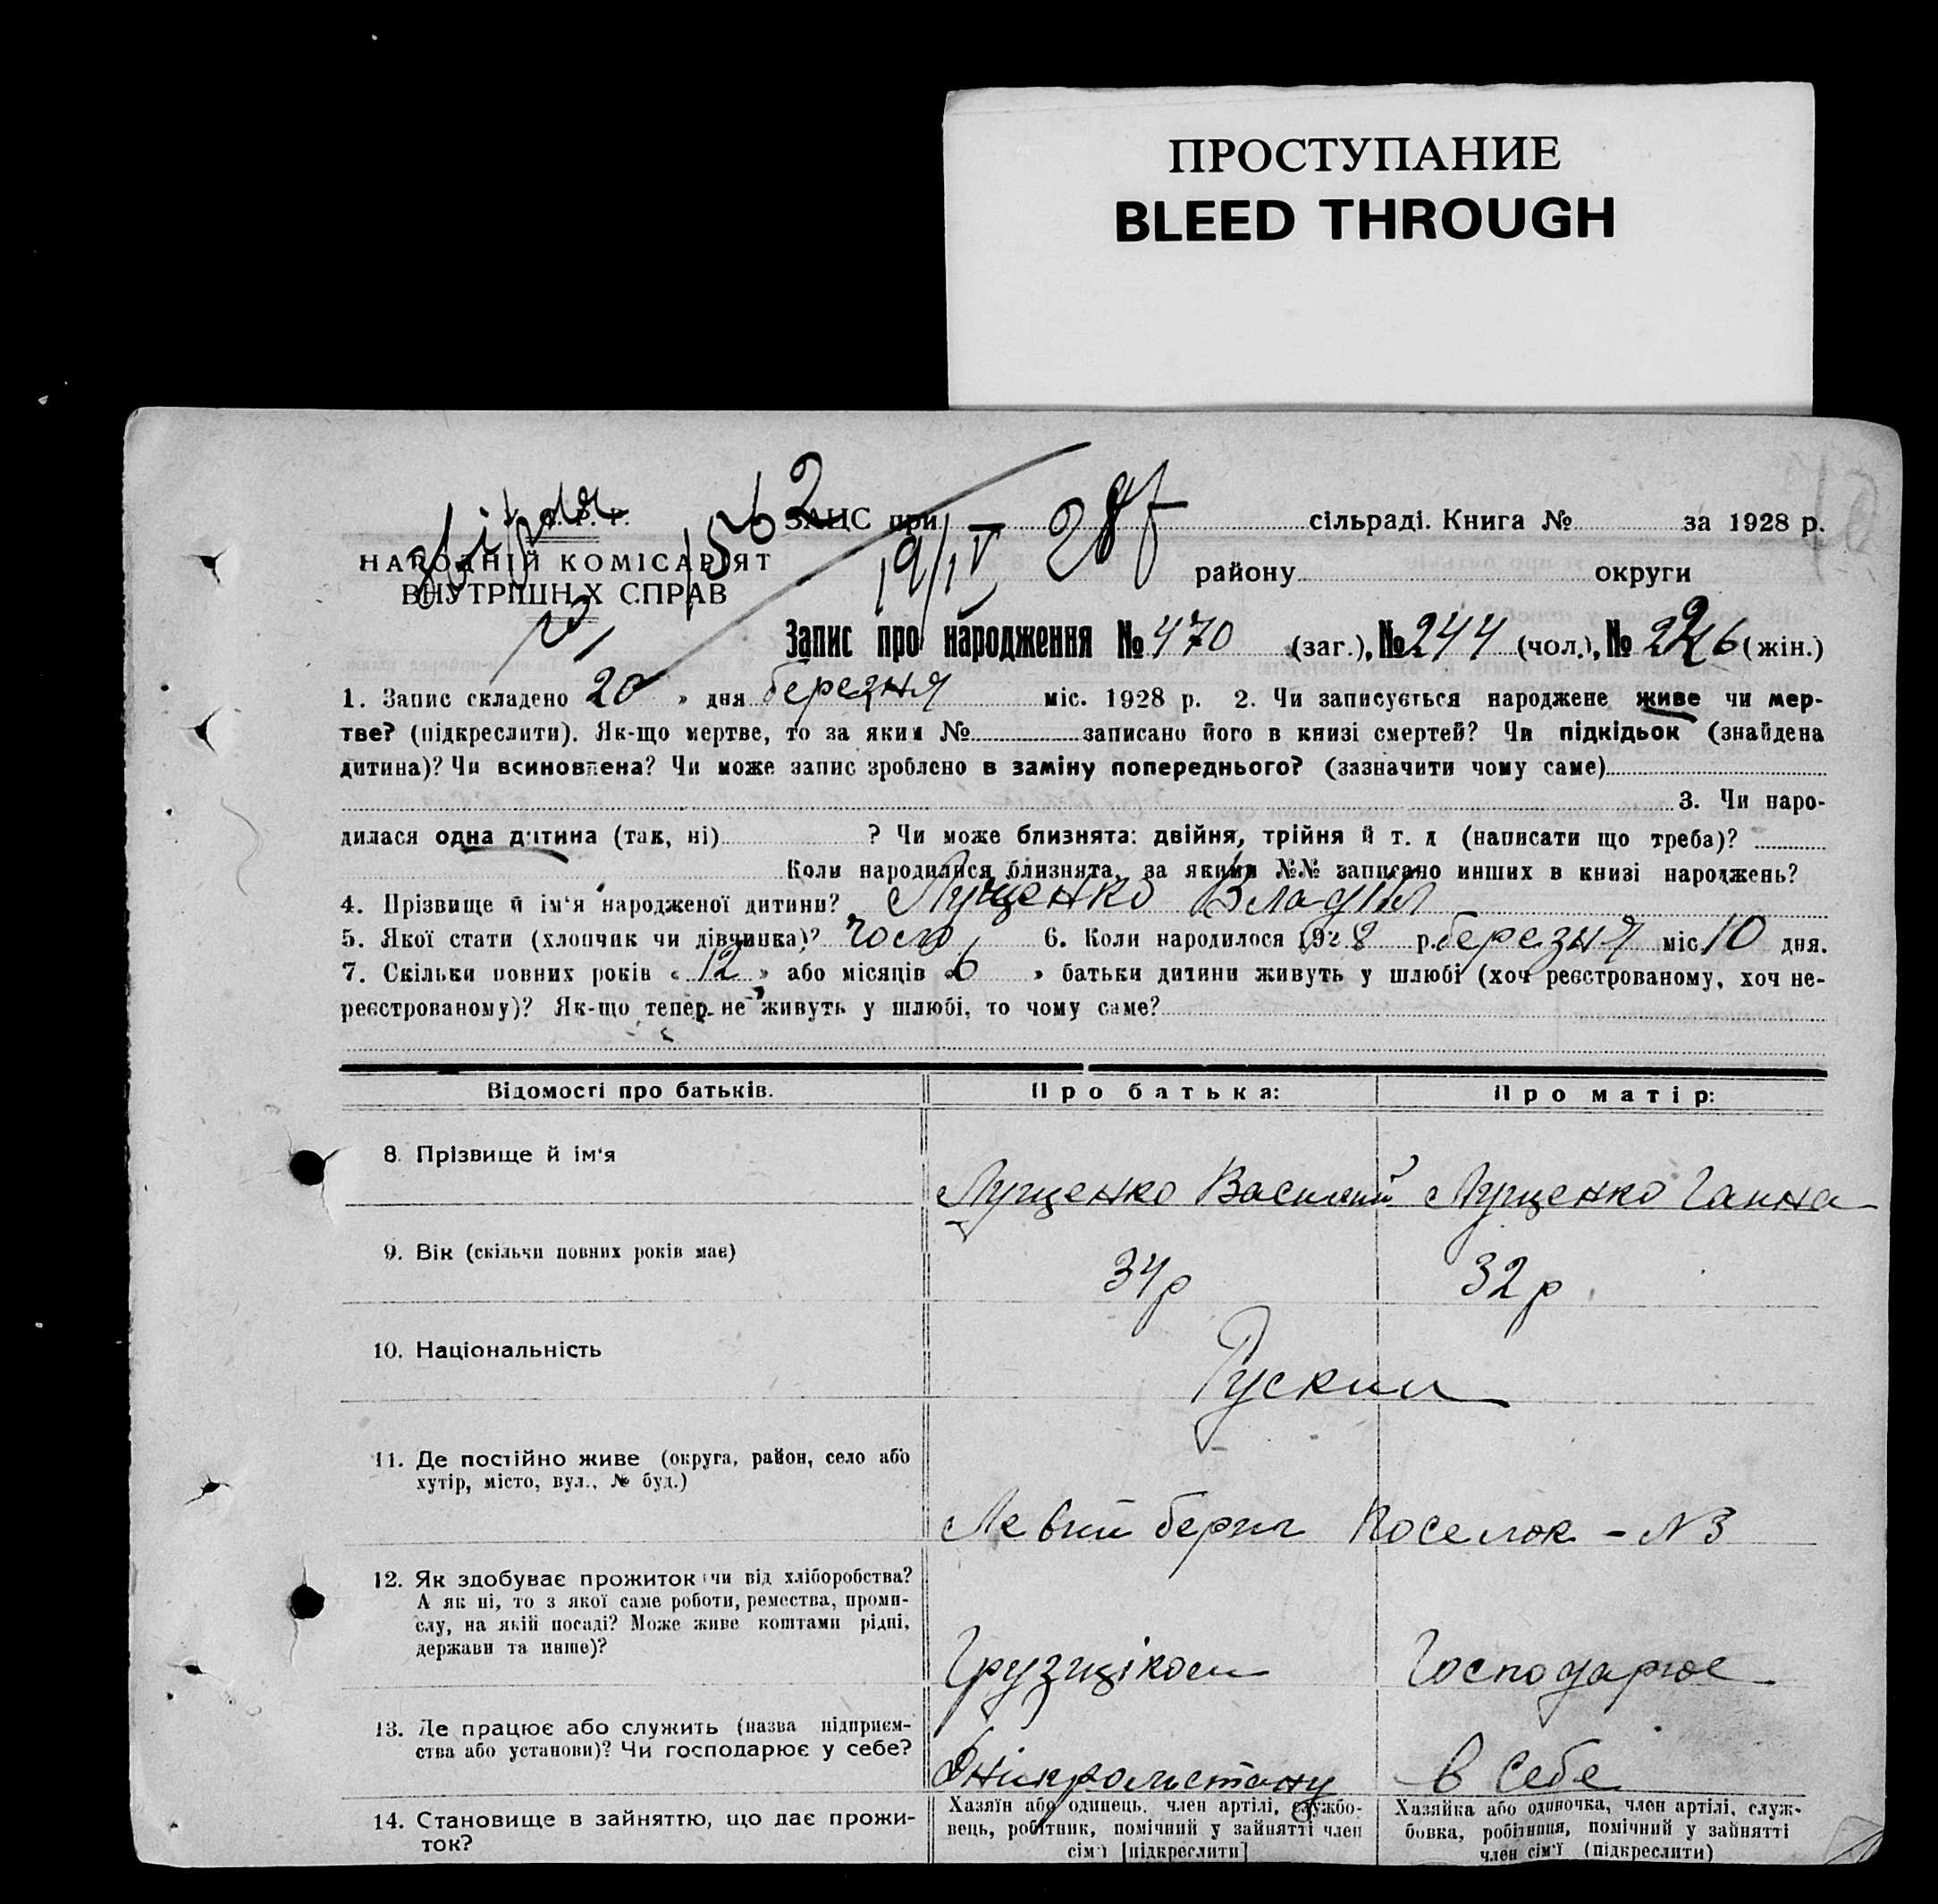 ПРОСТУПАНИЕ
BLEED THROUGH
ЗАЦС при сільраді. Книга № за 1928 р.
НАРОДНІЙ КОМІСАРІЯТ
19/IV 28
району округи
ВНУТРІШНІХ СПРАВ
Запис про народження № 470 (заг.), № 244 (чол.), № 226 (жін.)
1. Запис складено 20 » дня березня міс. 1928 р. 2. Чи записується народжене живе чи мер-
тве? (підкреслити). Як-що мертве, то за яким № записано його в книзі смертей? Чи підкідьок (знайдена
дитина)? Чи всиновлена? Чи може запис зроблено в заміну попереднього? (зазначити чому саме)
3. Чи наро-
дилася одна дитина (так, ні) ? Чи може близнята: двійня, трійня й т. д (написати що треба)?
Коли народилися близнята, за якими №№ записано инших в книзі народжень?
4. Прізвище й ім‘я народженої дитини? Лущенко
5. Якої стати (хлопчик чи дівчинка)? чоло 6. Коли народилося 1928 р. березня міс. 10 дня.
7. Скільки повних років « 12 » або місяців « 6 » батьки дитини живуть у шлюбі (хоч реєстрованому, хоч не-
реєстрованому)? Як-що тепер не живуть у шлюбі, то чому саме?
Відомості про батьків. Про батька: Про матір:
8. Прізвище й ім‘я
Лущенко Василий Лущенко Ганна
9. Вік (скільки повних років має)
34р 32р
10. Національність
Руский
11. Де постійно живе (округа, район, село або
хутір, місто, вул., № буд.)
Левий бериг Поселок - N3
12. Як здобуває прожиток чи від хліборобства?
А як ні, то з якої саме роботи, ремества, проми-
слу, на якій посаді? Може живе коштами рідні,
держави та инше)?
Грузщіком Господарюе
13. Де працює або служить (назва підприєм-
ства або установи)? Чи господарює у себе?
Днипрольстану в себе
14. Становище в зайняттю, що дає прожи-
ток?
Хазяїн або одинець, член артілі, службо-
вець, робітник, помічний у зайнятті член
сім‘ї [підкреслити]
Хазяйка або одиночка, член артілі, служ-
бовка, робітниця, помічний у зайнятті
член сім‘ї (підкреслити)